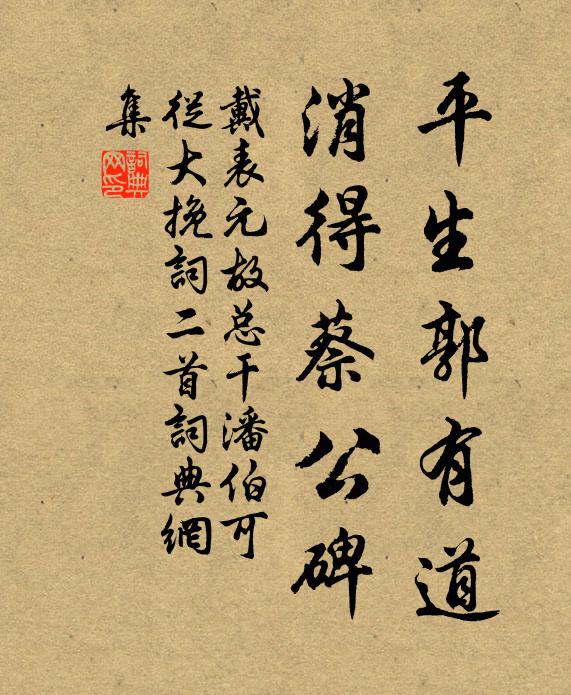 平生郭有道
消得蔡公碑
戴表元故总干潘伯可
從大挽詞二首詞典網
集
詞典
网印